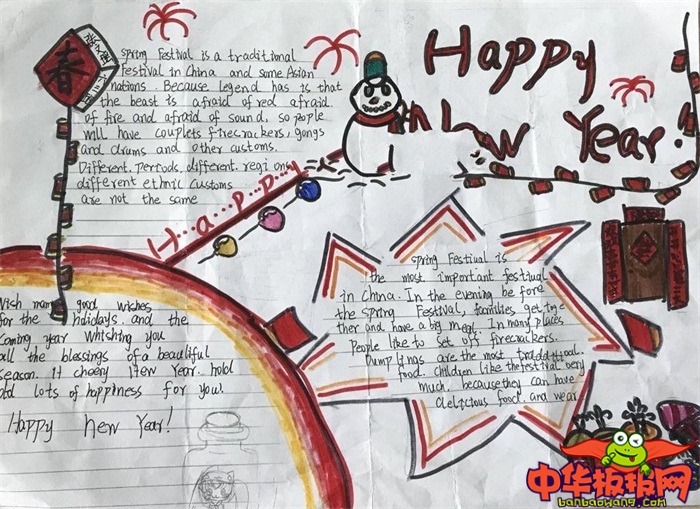 Happy
New Year.
春
Spring Festival is a traditional
festival in China and some Asian
nations. Because legend has is that
the beast is afraid of red afraid
of fire and afraid of sound, so people
will have couplets firecrackers, gongs
and drums and other customs.
Different. Periods, different. regions
different ethnic customs
are not the same
H...a...p...p...y
Spring Festival is
the most important festival
in China. In the evening be fore
the Spring Festival, families get tog-
ther and have a big meal. In many places
People like to set off firecrackers.
Dumplings are the most traddltional
food. Children like the festival very
much, because they can have
delelicious food and wear
Wish many good wishes
for the holidays. and the
coming year Whishing you
all the blessings of a beautiful
season. it cheery New Year. hold
and lots of happiness for you!
Happy new Year!
中华板报网
banbaowang.com